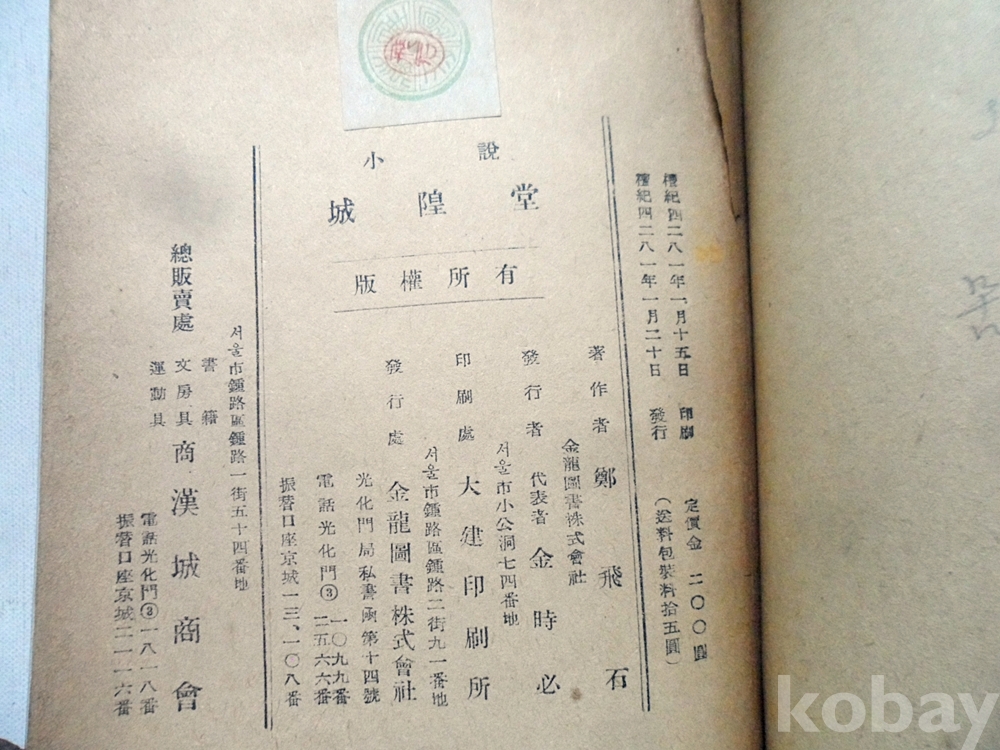 檀紀四二八一年一月十五日 印刷
檀紀四二八一年一月二十日 發行
定價金 二〇〇圓
(送料包裝料拾五圓)
小說
城隍堂
版權所有
著作者 鄭飛石
金龍圖書株式會社
發行者 代表者 金時必
서울市小公洞七四番地
印刷處 大建印刷所
서울市鍾路區鍾路二街九一番地
發行處 金龍圖書株式會社
光化門局私書函第十四號
電話光化門③ 一〇九九番
二五六六番
振替口座京城一三、一〇八番
서울市鍾路區鍾路一街五十四番地
總販賣處
書籍
文房具
運動具
商漢城商會
電話光化門③一八一八番
振替口座京城二一一六番
kobay